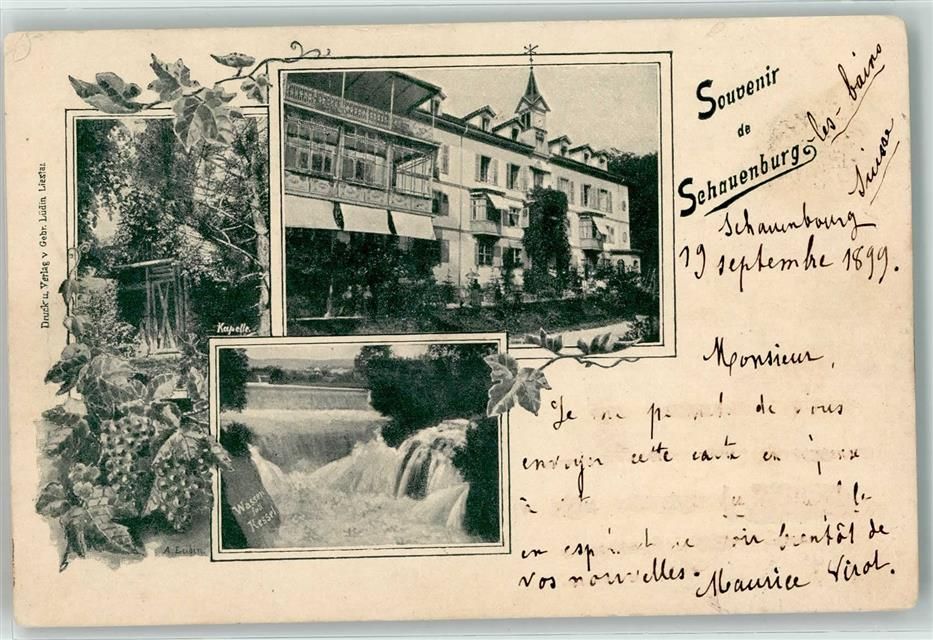 Souvenir
de
Schauenburg
les-bains
Suisse
Schauenbourg
19 septembre 1899.
Monsieur,
Je me de vous
envoyer cette carte en
à
en voir bientôt de
vos nouvelles.
Maurice Virot.
Druck u. Verlag v. Gebr. Lüdin Liestal
Kapelle.
Wasser
fall
Kessel
A. Lüdin.